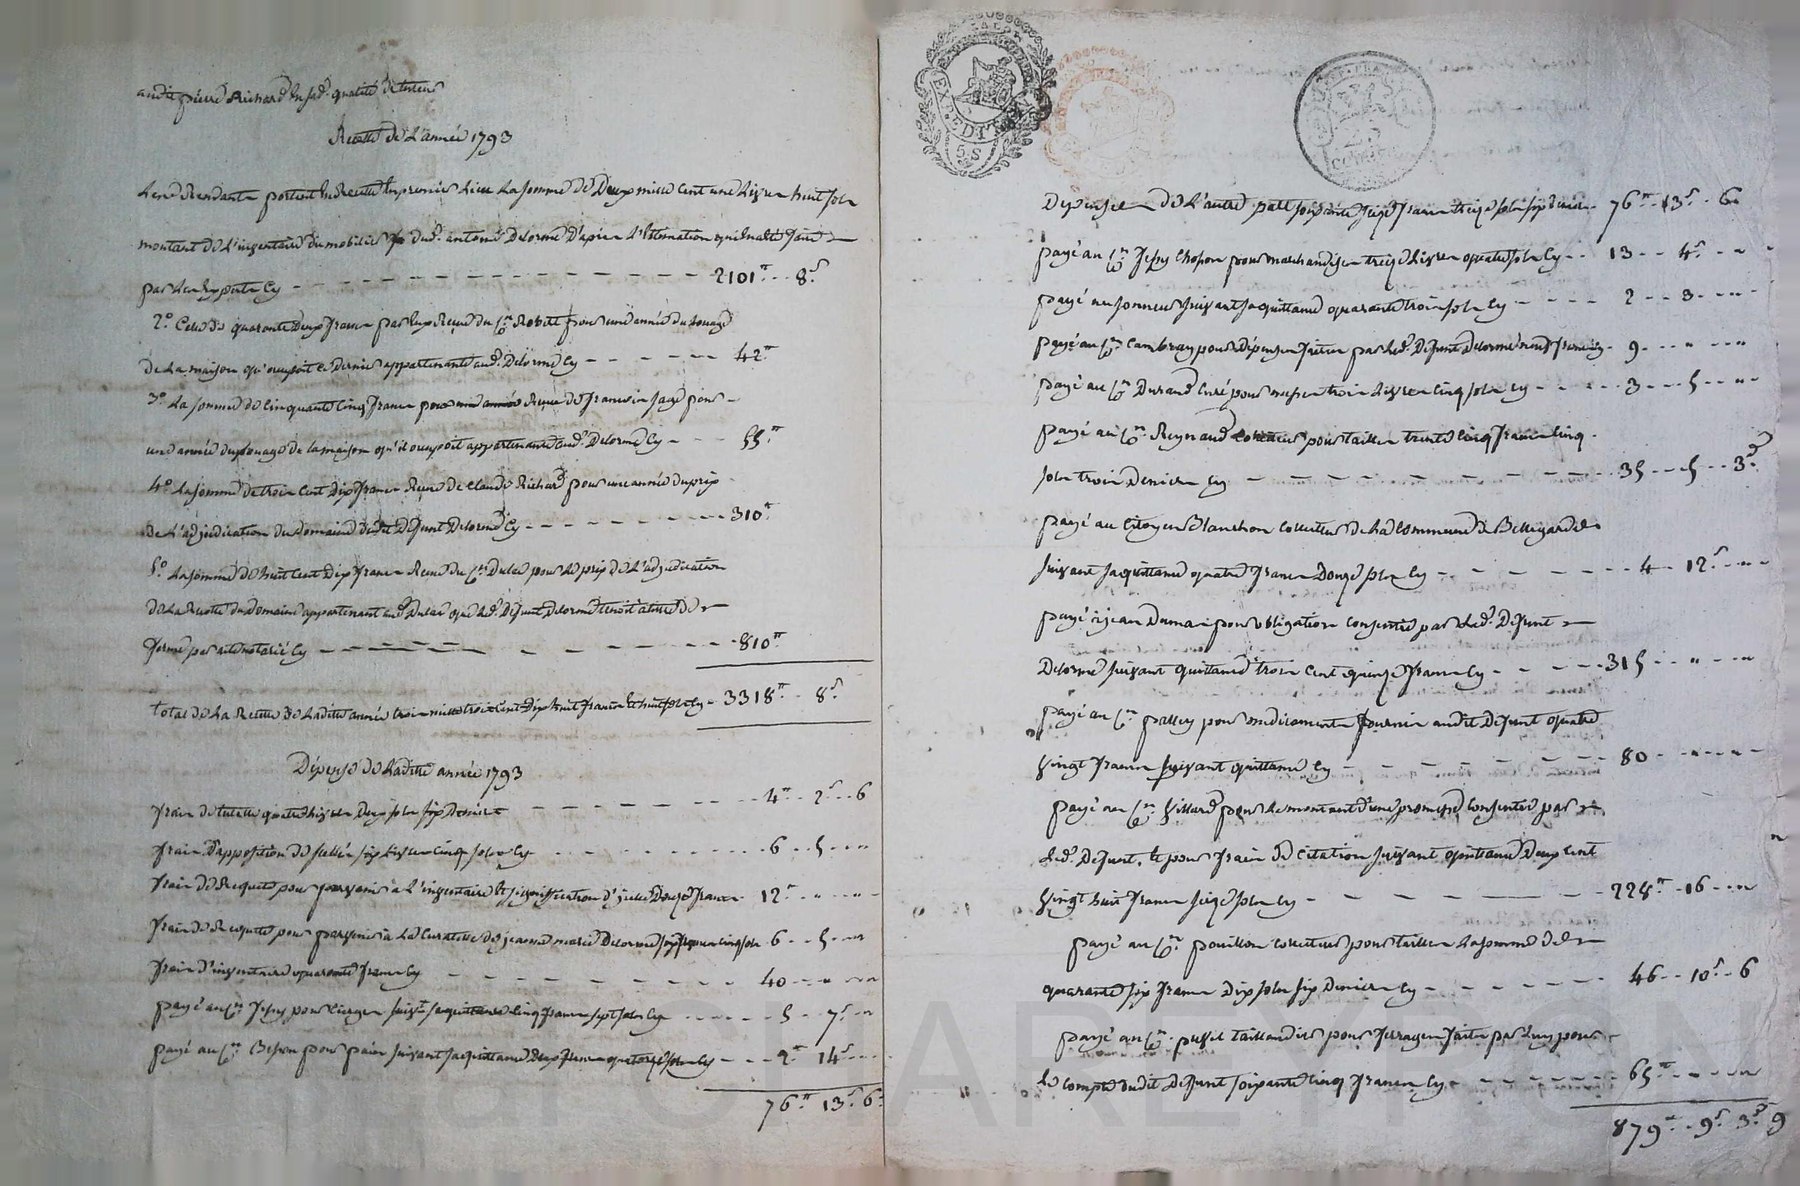 audit pierre Richard En sad. qualité de tuteur
Recette de L'année 1793
Led. Rendant portent En Recette En premier Lieu La somme de Deux mille cent une Livres huit sols
montant de L'inventaire du mobilier dud. antoine Delorme D'après L'Estimation qui En a été faite
par Les Experts Cy - - - 2101tt - 8s
2° Celle de quarante Deux francs par Luy Reçue du Cen Robert pour une année du Louage
de La maison qu'occupoit ce dernier appartenante aud. Delorme Cy - - - 42tt
3° La somme de Cinquante Cinq francs Reçue de francois sage pour
une année du Louage de la maison qu'il occupoit appartenante aud. Delorme Cy - - - 55tt
4° La somme de trois Cent Dix francs Reçue de Claude Richard pour une année du prix
de L'adjudication du Domaine dudit Defunt Delorme Cy - - - 310tt
5° La somme de huit Cent Dix francs Reçue du Cen Dulac pour Le prix de L'adjudication
de La Recette du Domaine appartenant aud. Dulac que Led. Defunt Delorme tenoit à titre de
ferme par acte notarié Cy - - - 810tt
total de La Recette de Laditte année trois mille trois Cent Dix huit francs et huit sols Cy - 3318tt - 8s
Dépense de Laditte année 1793
frais de tutelle quatre Livres Deux sols six deniers - - - 4tt - 2s - 6
frais D'apposition de scellés six Livres Cinq sols Cy - - - 6 - 5 - "
frais de Requete pour parvenir à L'inventaire et signification d'icelle Douze francs 12tt - " - "
frais de Requete pour parvenir à La Curatelle de jeanne marie Delorme six francs Cinq sols 6 - 5 - "
frais d'inventaire quarante francs Cy - - - 40 - " - "
payé au Cen Jesny pour Cierges suivt sa quittance Cinq francs sept sols Cy - - - 5 - 7s - "
payé au Cen Besson pour pain suivant sa quittance Deux francs quatorze sols Cy - - - 2tt 14s -
76tt 13s 6d
EXPEDITION
5 S
Depenses de L'autre part soixante seize francs treize sols six deniers - 76tt - 13s - 6
payé au Cen Jesny Chapon pour marchandises treize Livres quatre sols Cy - - 13 - - 4s - "
payé au suivant sa quittance quarante trois sols Cy - - - 2 - 3 - "
payé au Cen Cambray pour Dépenses faites par Led. Defunt Delorme neuf francs Cy - 9 - " - "
payé au Cen Durand Curé pour messes trois Livres Cinq sols Cy - - - 3 - 5 - "
payé au Cen Reynaud Collecteur pour tailles trente Cinq francs Cinq
sols trois Deniers Cy - - - 35 - 5 - 3d
payé au Citoyen Blanchon Collecteur de La Commune de Bellegarde
suivant sa quittance quatre francs Douze sols Cy - - - 4 - 12s - "
payé à jean Dumas pour obligation Consentie par Led. Defunt
Delorme suivant quittance trois Cent quinze francs Cy - - - 315 - " - "
payé au Cen palley pour medicaments fournis audit Defunt quatre
vingt francs suivant quittance Cy - - - 80 - " - "
payé au Cen Villard pour Le montant d'une promesse Consentie par
Led. Defunt, et pour frais de Citation suivant quittance Deux Cent
vingt huit francs seize sols Cy - - - 228tt - 16 - "
payé au Cen pouillon Collecteur pour tailles La somme de
quarante six francs Dix sols six Deniers Cy - - - 46 - 10s - 6
payé au Cen taillandier pour ferrages faits par Luy pour
Le compte dudit Defunt soixante Cinq francs Cy - - - 65tt - " - "
879tt - 9s 3d